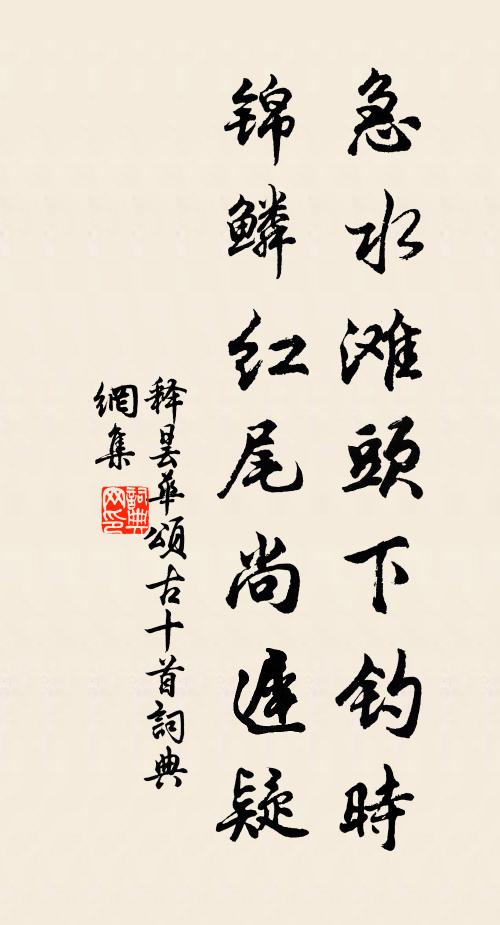 急水滩頭下钓時
锦鳞红尾尚遲疑
释昙华頌古十首詞典
網集
詞典
网印